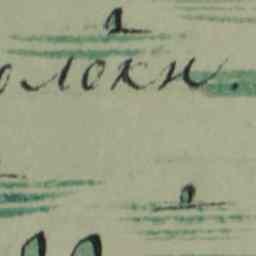 олоки.